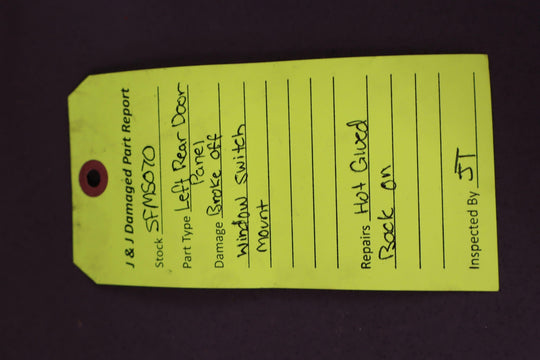 J & J Damaged Part Report
Stock SFMS070
Part Type Left Rear Door
Panel
Damage Broke off
Window switch
mount
Repairs Hot Glued
Back on
Inspected By JT